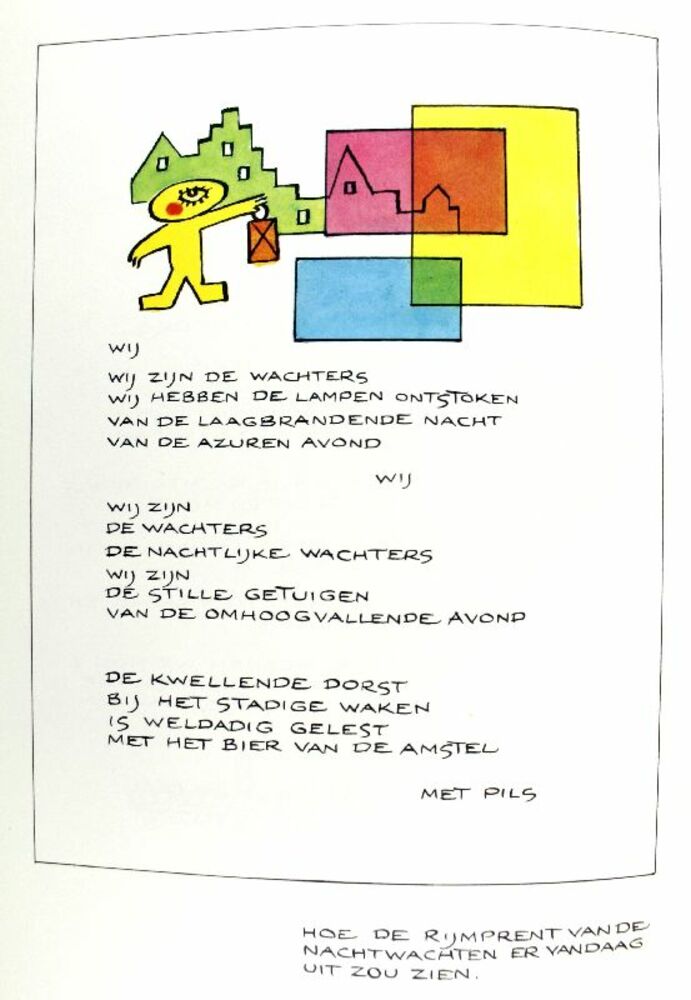 WIJ
WIJ ZIJN DE WACHTERS
WIJ HEBBEN DE LAMPEN ONTSTOKEN
VAN DE LAAGBRANDENDE NACHT
VAN DE AZUREN AVOND
WIJ
WIJ ZIJN
DE WACHTERS
DE NACHTLIJKE WACHTERS
WIJ ZIJN
DE STILLE GETUIGEN
VAN DE OMHOOGVALLENDE AVOND
DE KWELLENDE DORST
BIJ HET STADIGE WAKEN
IS WELDADIG GELEST
MET HET BIER VAN DE AMSTEL
MET PILS
HOE DE RIJMPRENT VAN DE
NACHTWACHTEN ER VANDAAG
UIT ZOU ZIEN.